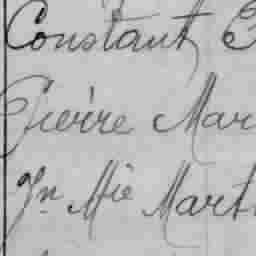 Constant
Pierre Mar
Jn Mie Mart